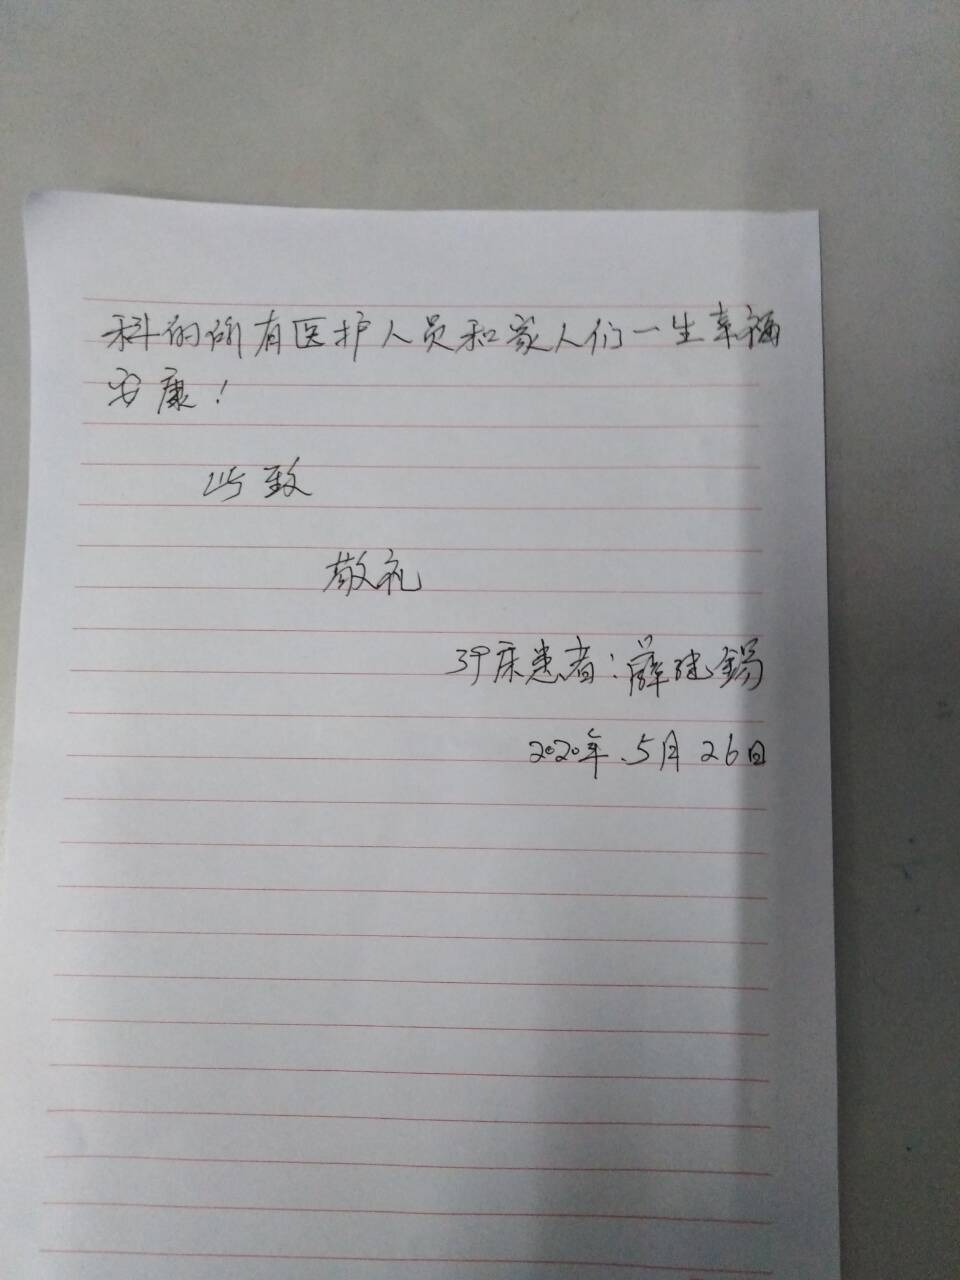 科的所有医护人员和家人们一生幸福
安康！
此致
敬礼
39床患者：薛建锡
2020年.5月26日